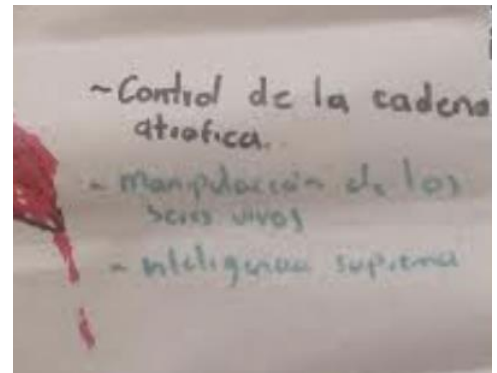 ~Control de la cadena
atrofica.
- Manipulación de los
seres vivos
- inteligencia suprema